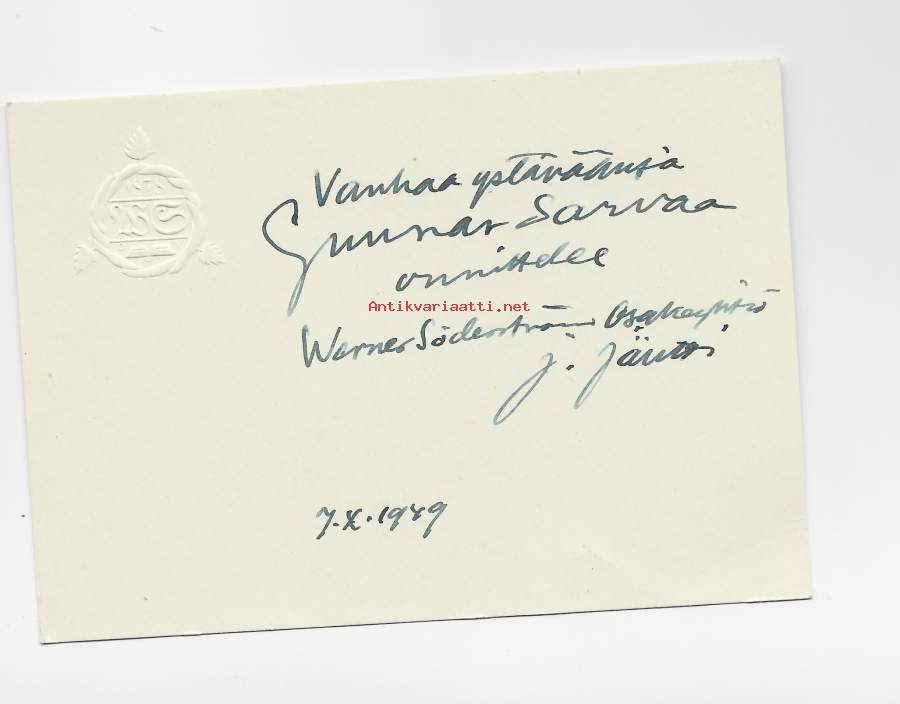 Vanhaa ystäväänsä
Gunnar Sarvaa
onnittelee
Antikvariaatti.net
Werner Söderström Osakeyhtiö
J. Jäntti
7.X.1949